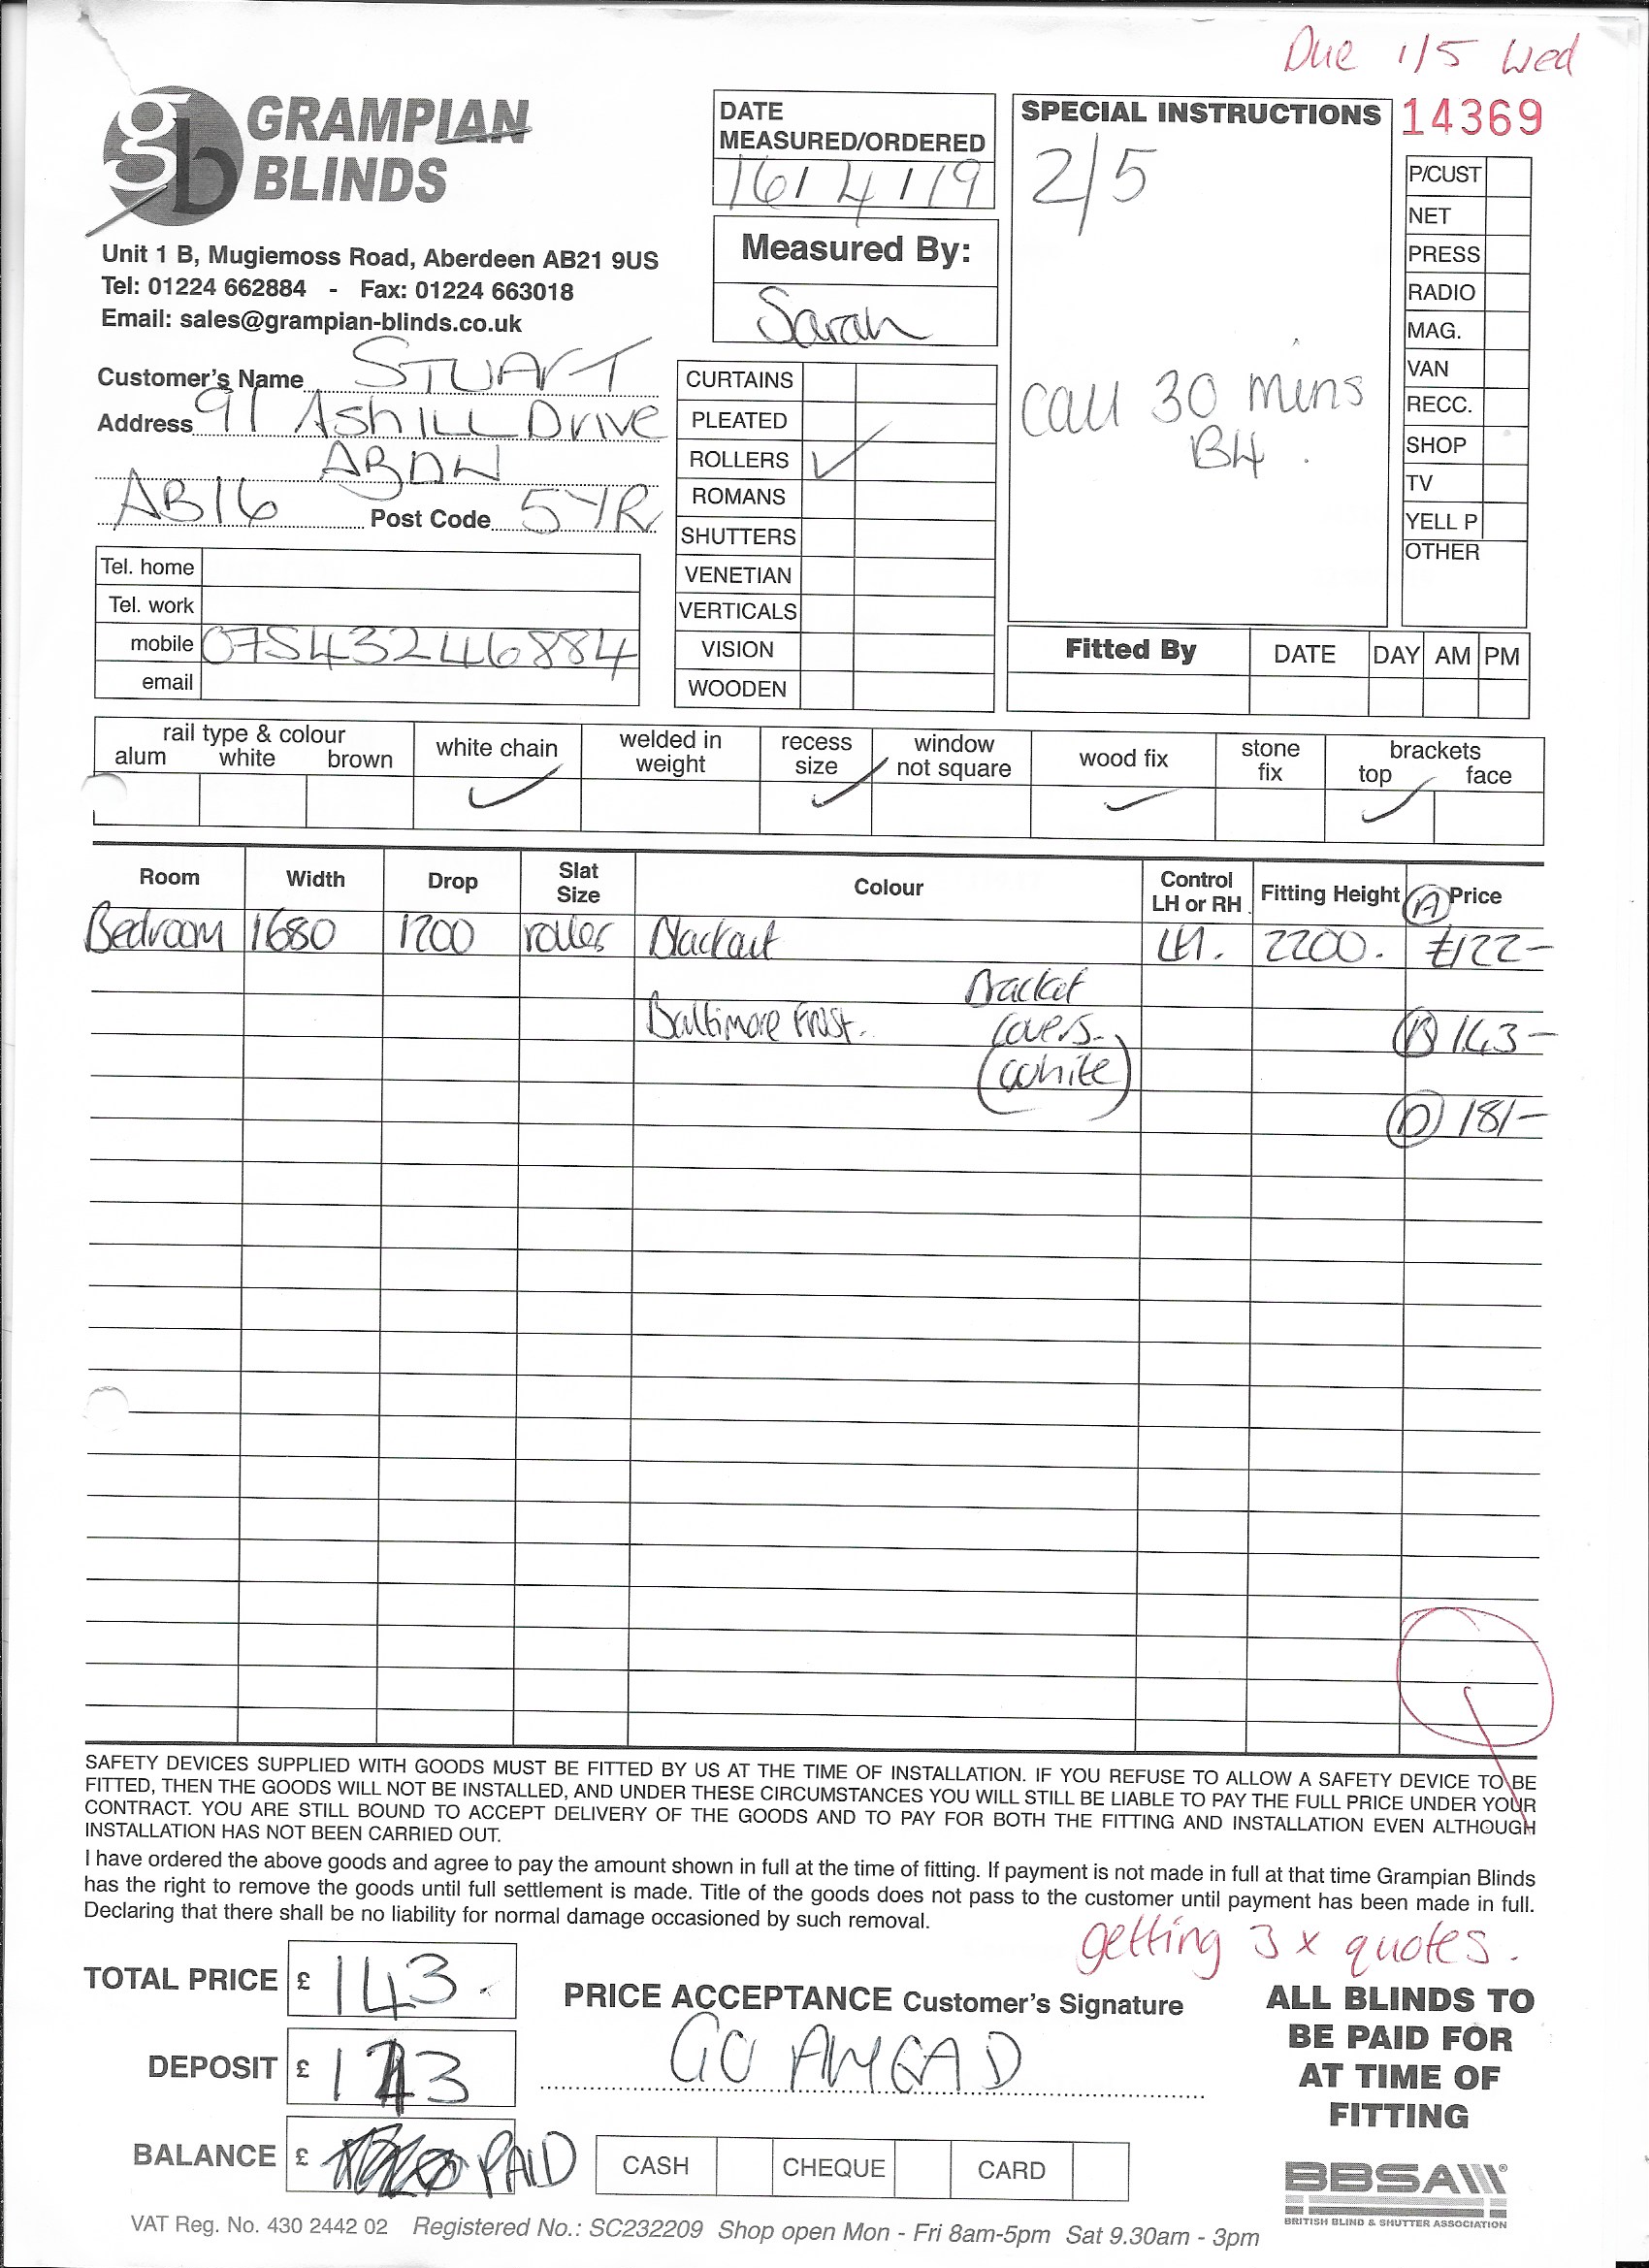 Due 1/5 Wed
GRAMPIAN
BLINDS
gb
Unit 1 B, Mugiemoss Road, Aberdeen AB21 9US
Tel: 01224 662884 - Fax: 01224 663018
Email: sales@grampian-blinds.co.uk
Customer's Name STUART
Address 91 AshILL Drive
ABDN
AB16 Post Code 5YR
Tel. home
Tel. work
mobile 07543246884
email
DATE
MEASURED/ORDERED
16/4/19
Measured By:
Sarah
CURTAINS
PLEATED
ROLLERS ✓
ROMANS
SHUTTERS
VENETIAN
VERTICALS
VISION
WOODEN
SPECIAL INSTRUCTIONS
2/5
call 30 mins
B4.
14369
P/CUST
NET
PRESS
RADIO
MAG.
VAN
RECC.
SHOP
TV
YELL P
OTHER
Fitted By DATE DAY AM PM
rail type & colour
alum white brown
white chain ✓
welded in weight
recess size ✓
window not square
wood fix ✓
stone fix
brackets
top ✓ face
Room Width Drop Slat Size Colour Control LH or RH Fitting Height Price
Bedroom 1680 1200 roller Blackout LH. 2200. (A) £122-
Bracket
Baltimore Frost. covers. (B) 143-
(white)
(D) 181-
SAFETY DEVICES SUPPLIED WITH GOODS MUST BE FITTED BY US AT THE TIME OF INSTALLATION. IF YOU REFUSE TO ALLOW A SAFETY DEVICE TO BE
FITTED, THEN THE GOODS WILL NOT BE INSTALLED, AND UNDER THESE CIRCUMSTANCES YOU WILL STILL BE LIABLE TO PAY THE FULL PRICE UNDER YOUR
CONTRACT. YOU ARE STILL BOUND TO ACCEPT DELIVERY OF THE GOODS AND TO PAY FOR BOTH THE FITTING AND INSTALLATION EVEN ALTHOUGH
INSTALLATION HAS NOT BEEN CARRIED OUT.
I have ordered the above goods and agree to pay the amount shown in full at the time of fitting. If payment is not made in full at that time Grampian Blinds
has the right to remove the goods until full settlement is made. Title of the goods does not pass to the customer until payment has been made in full.
Declaring that there shall be no liability for normal damage occasioned by such removal.
getting 3 x quotes.
TOTAL PRICE £ 143.
DEPOSIT £ 143
BALANCE £ PAID
PRICE ACCEPTANCE Customer's Signature
GO AHEAD
CASH CHEQUE CARD
ALL BLINDS TO
BE PAID FOR
AT TIME OF
FITTING
BBSA
BRITISH BLIND & SHUTTER ASSOCIATION
VAT Reg. No. 430 2442 02 Registered No.: SC232209 Shop open Mon - Fri 8am-5pm Sat 9.30am - 3pm